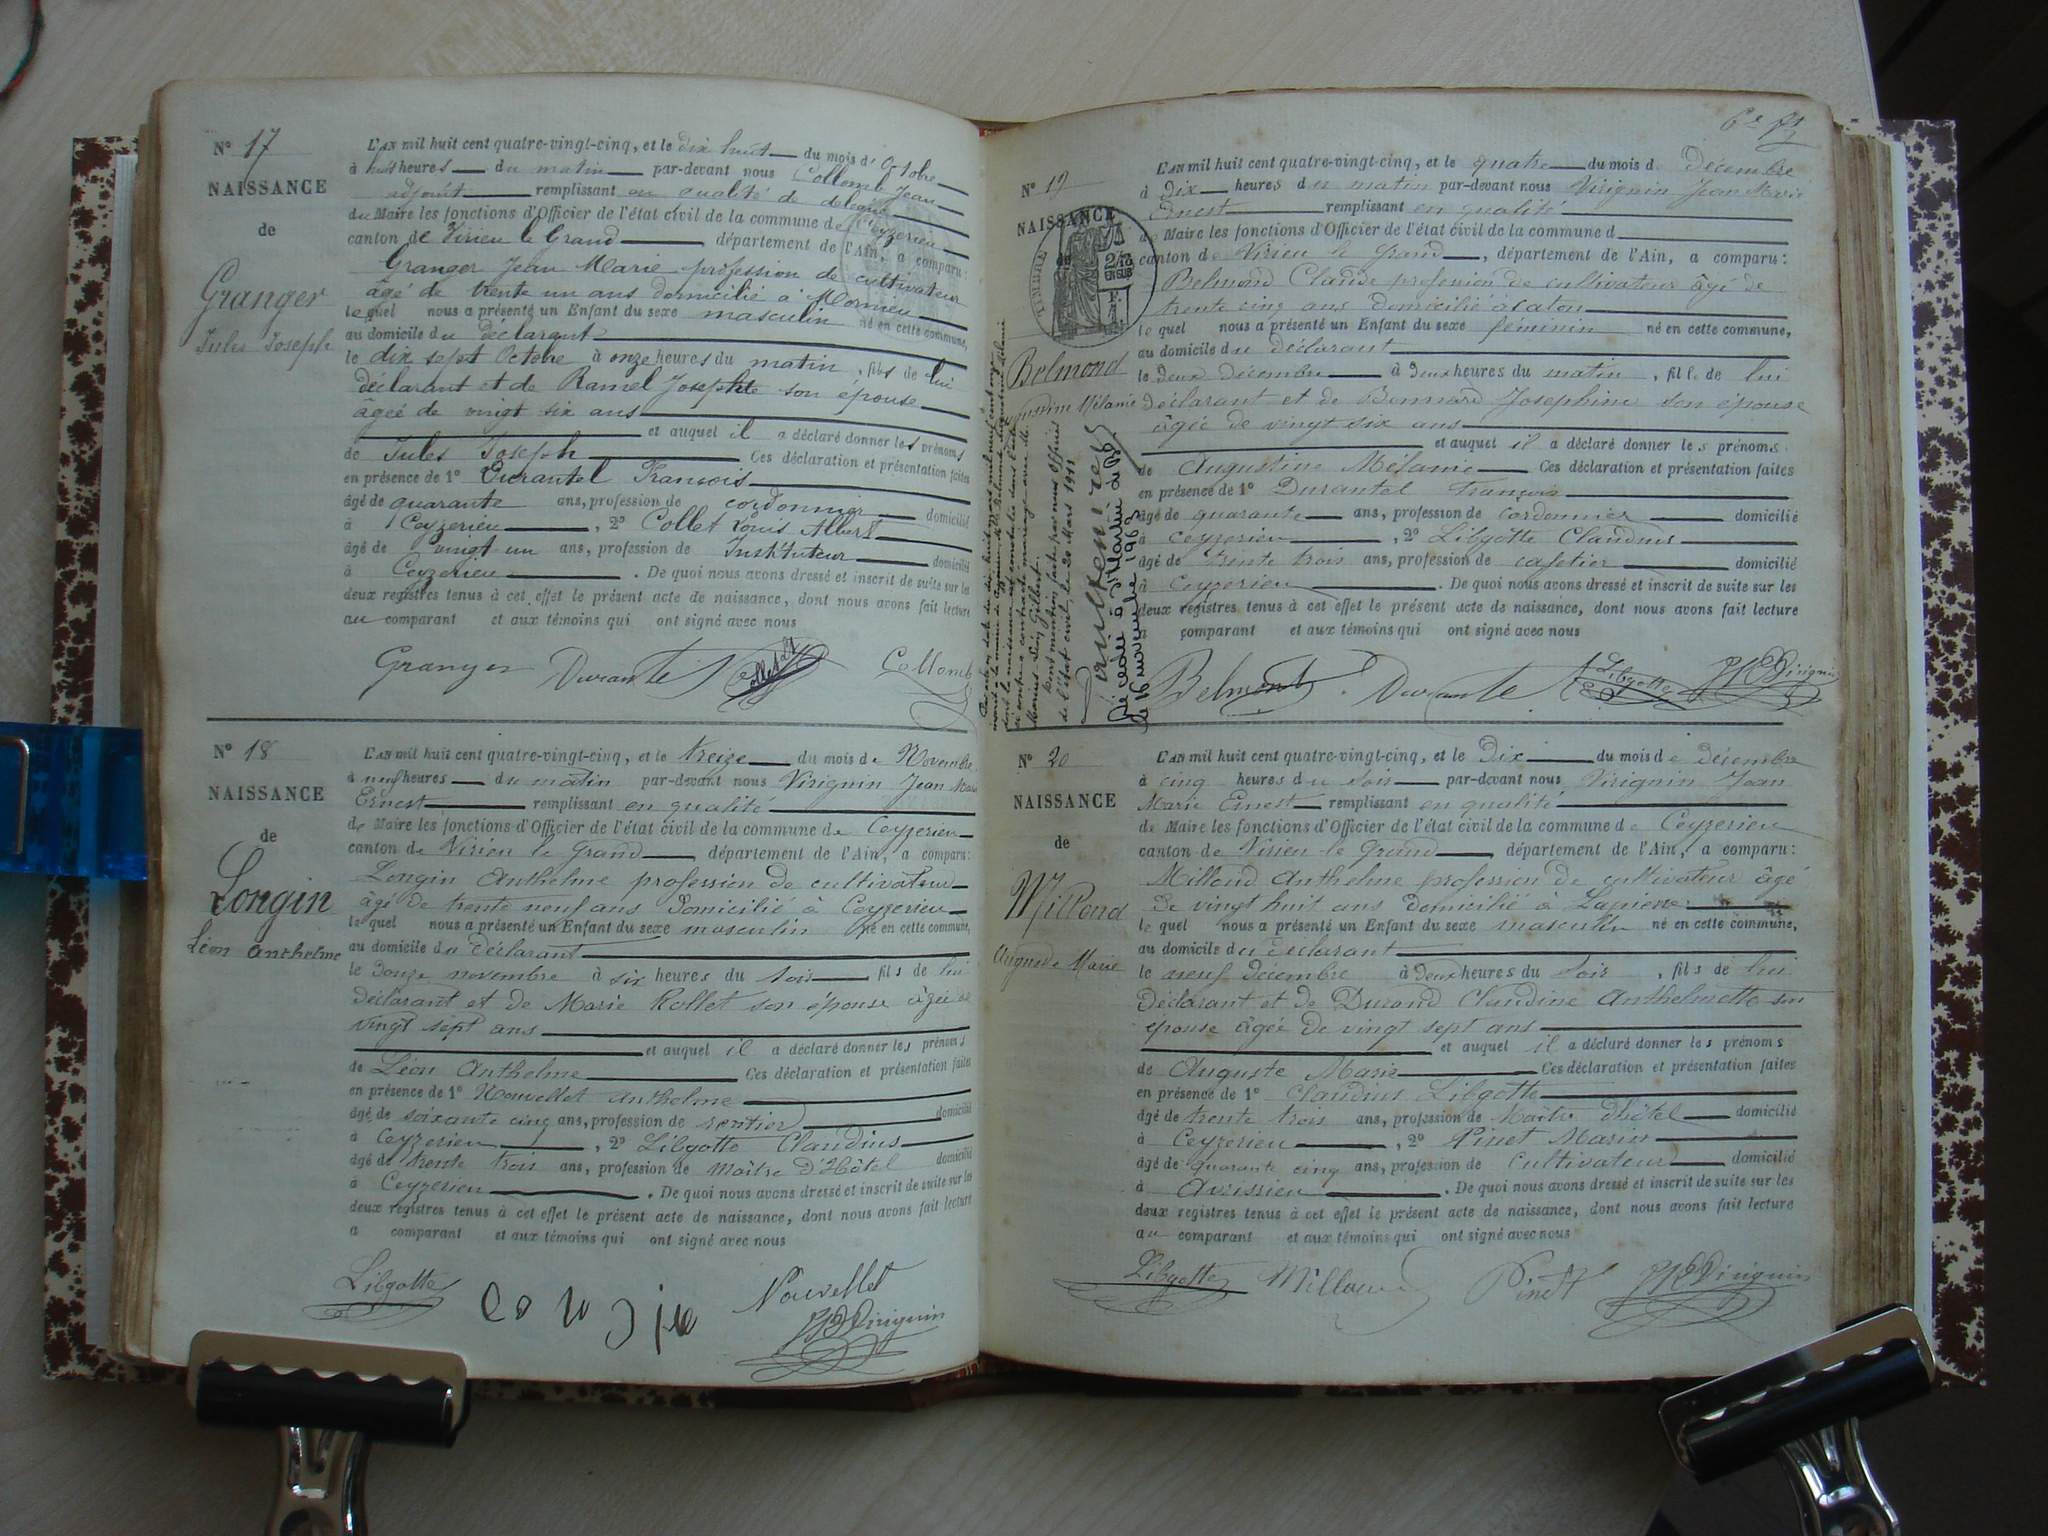 N° 17
NAISSANCE
de
Granger
Jules Joseph
L'AN mil huit cent quatre-vingt-cinq, et le dix huit du mois d'Octobre
à huit heures du matin par-devant nous Collomb Jean
adjoint remplissant en qualité de délégué
du Maire les fonctions d'Officier de l'état civil de la commune de Ceyzerieu
canton de Virieu le Grand département de l'Ain, a comparu:
Granger Jean Marie profession de cultivateur
âgé de trente un ans domicilié à Mornieu
lequel nous a présenté un Enfant du sexe masculin né en cette commune,
au domicile du déclarant
le dix sept Octobre à onze heures du matin, fils de lui
déclarant et de Ramel Josephte son épouse
âgée de vingt six ans
et auquel il a déclaré donner les prénoms
de Jules Joseph Ces déclaration et présentation faites
en présence de 1° Durantel François
âgé de quarante ans, profession de cordonnier domicilié
à Ceyzerieu, 2° Collet Louis Albert
âgé de vingt un ans, profession de Instituteur domicilié
à Ceyzerieu. De quoi nous avons dressé et inscrit de suite sur les
deux registres tenus à cet effet le présent acte de naissance, dont nous avons fait lecture
au comparant et aux témoins qui ont signé avec nous
Granger Durantel Collet Collomb
N° 18
NAISSANCE
de
Longin
Léon Anthelme
L'AN mil huit cent quatre-vingt-cinq, et le treize du mois de Novembre
à neuf heures du matin par-devant nous Virignin Jean Marie
Ernest remplissant en qualité
de Maire les fonctions d'Officier de l'état civil de la commune de Ceyzerieu
canton de Virieu le Grand, département de l'Ain, a comparu:
Longin Anthelme profession de cultivateur
âgé de trente neuf ans Domicilié à Ceyzerieu
lequel nous a présenté un Enfant du sexe masculin né en cette commune,
au domicile du déclarant
le Douze novembre à six heures du soir fils de lui
déclarant et de Marie Rollet son épouse âgée de
vingt sept ans
et auquel il a déclaré donner les prénoms
de Léon Anthelme Ces déclaration et présentation faites
en présence de 1° Nouvellet Anthelme
âgé de soixante cinq ans, profession de rentier domicilié
à Ceyzerieu, 2° Libgotte Claudius
âgé de trente trois ans, profession de Maître D'Hôtel domicilié
à Ceyzerieu. De quoi nous avons dressé et inscrit de suite sur les
deux registres tenus à cet effet le présent acte de naissance, dont nous avons fait lecture
a comparant et aux témoins qui ont signé avec nous
Libgotte Nouvellet
JME Virignin
N° 19
NAISSANCE
de
TIMBRE
Belmond
Augustine Mélanie
Décédée à
le novembre 1963
de l'état civil, le 20 Mars 1911
L'AN mil huit cent quatre-vingt-cinq, et le quatre du mois d. Décembre
à Dix heures du matin par-devant nous Virignin Jean Marie
Ernest remplissant en qualité
de Maire les fonctions d'Officier de l'état civil de la commune d
canton de Virieu le Grand, département de l'Ain, a comparu:
Belmond Claude profession de cultivateur âgé de
trente cinq ans domicilié à
le quel nous a présenté un Enfant du sexe féminin né en cette commune,
au domicile du déclarant
le Deux décembre à Deux heures du matin, fille de lui
déclarant et de Bonnard Josephine son épouse
âgée de vingt six ans
et auquel il a déclaré donner les prénoms
de Augustine Mélanie Ces déclaration et présentation faites
en présence de 1° Durantel François
âgé de quarante ans, profession de cordonnier domicilié
à Ceyzerieu, 2° Libgotte Claudius
âgé de trente trois ans, profession de cafetier domicilié
à Ceyzerieu. De quoi nous avons dressé et inscrit de suite sur les
deux registres tenus à cet effet le présent acte de naissance, dont nous avons fait lecture
à comparant et aux témoins qui ont signé avec nous
Belmond Durantel Libgotte JME Virignin
N° 20
NAISSANCE
de
Milland
Auguste Marie
L'AN mil huit cent quatre-vingt-cinq, et le Dix du mois de Décembre
à cinq heures du soir par-devant nous Virignin Jean
Marie Ernest remplissant en qualité
de Maire les fonctions d'Officier de l'état civil de la commune de Ceyzerieu
canton de Virieu le Grand, département de l'Ain, a comparu:
Milland Anthelme profession de cultivateur âgé
De vingt huit ans Domicilié à
le quel nous a présenté un Enfant du sexe masculin né en cette commune,
au domicile du déclarant
le neuf décembre à Deux heures du soir, fils de lui
Déclarant et de Durand Claudine Anthelmette son
épouse âgée de vingt sept ans
et auquel il a déclaré donner les prénoms
de Auguste Marie Ces déclaration et présentation faites
en présence de 1° Claudius Libgotte
âgé de trente trois ans, profession de Maître d'hôtel domicilié
à Ceyzerieu, 2° Pinet Marin
âgé de quarante cinq ans, profession de cultivateur domicilié
à Avrissieu. De quoi nous avons dressé et inscrit de suite sur les
deux registres tenus à cet effet le présent acte de naissance, dont nous avons fait lecture
au comparant et aux témoins qui ont signé avec nous
Libgotte Milland Pinet JME Virignin